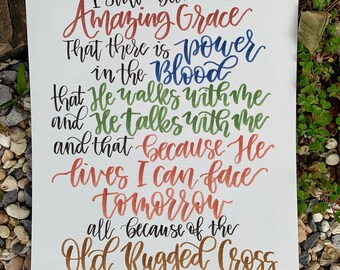 Amazing Grace
That there is power
in the Blood
that He walks with me
and He talks with me
and that because He
lives I can face
tomorrow
all because of the
Old Rugged Cross